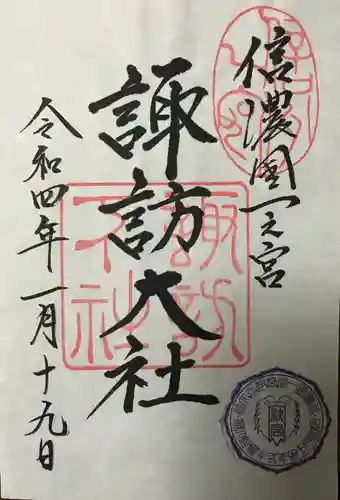 信濃國一之宮
諏訪大社
令和四年一月十九日